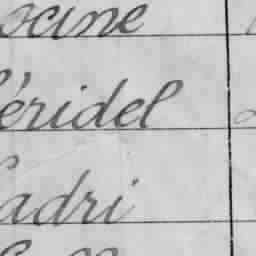 ocine
éridel
adri